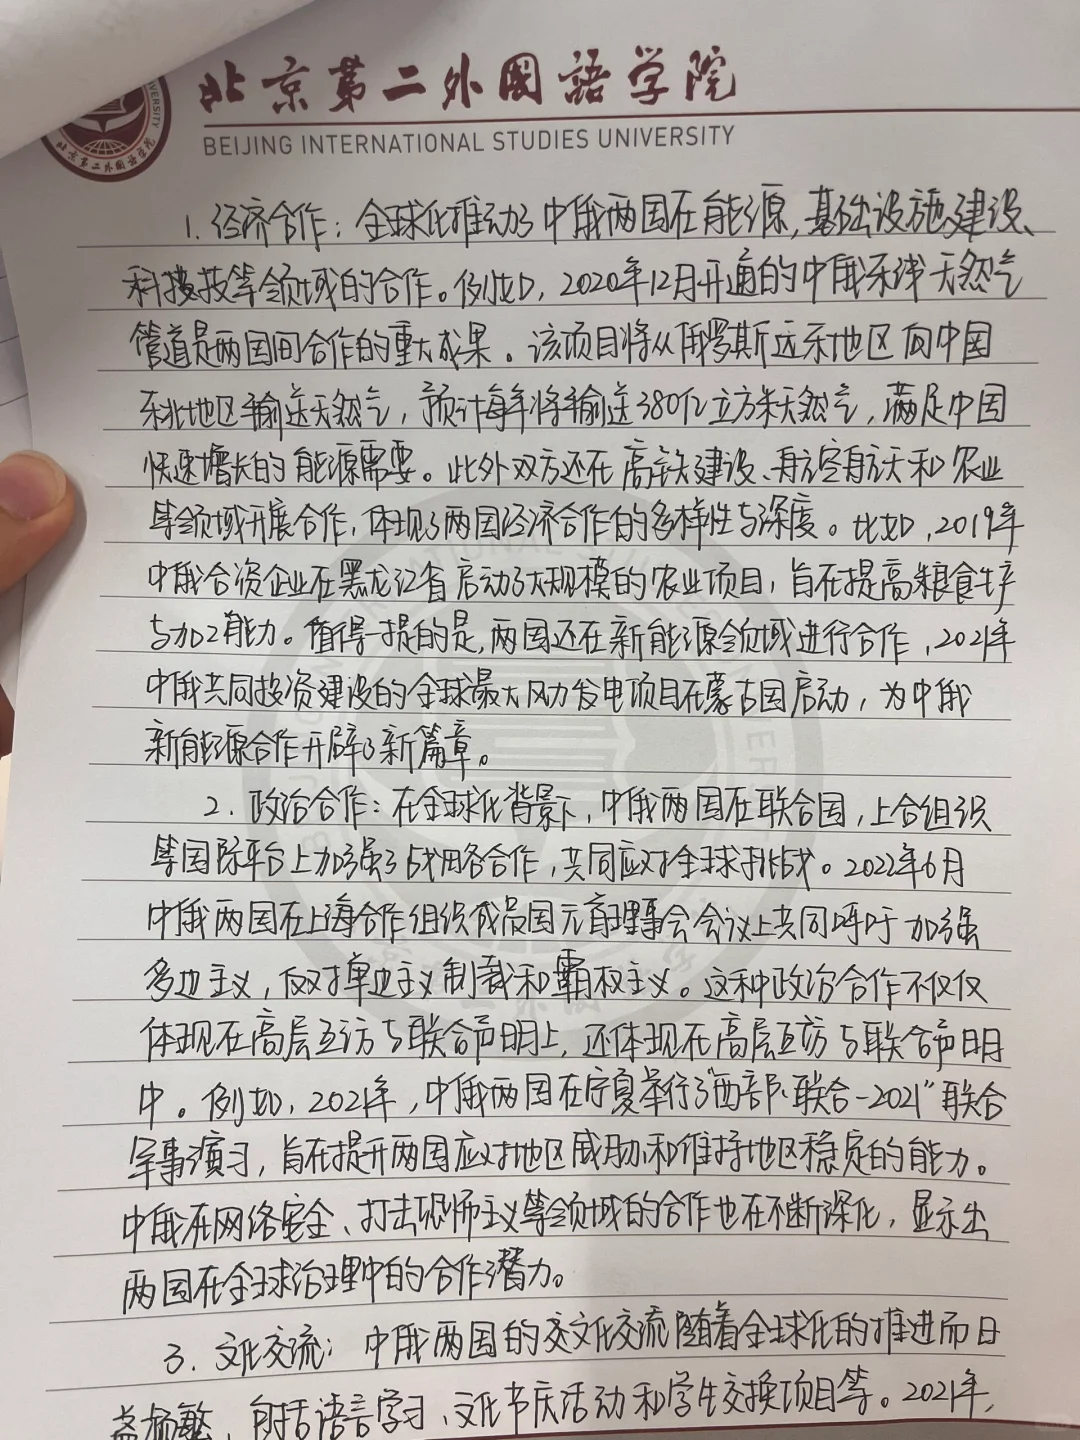 北京第二外国語学院
BEIJING INTERNATIONAL STUDIES UNIVERSITY
1. 经济合作：全球化推动了中俄两国在能源，基础设施建设、
科技等领域的合作。例如，2020年12月开通的中俄东线天然气
管道是两国间合作的重大成果。该项目将从俄罗斯远东地区向中国
东北地区输送天然气，预计每年将输送380亿立方米天然气，满足中国
快速增长的能源需要。此外双方还在高铁建设、航空航天和农业
等领域开展合作，体现了两国经济合作的多样性与深度。比如，2019年
中俄合资企业在黑龙江省启动了大规模的农业项目，旨在提高粮食生产
与加工能力。值得一提的是，两国还在新能源领域进行合作，2021年
中俄共同投资建设的全球最大风力发电项目在蒙古国启动，为中俄
新能源合作开辟了新篇章。
2. 政治合作：在全球化背景下，中俄两国在联合国，上合组织
等国际平台上加强了战略合作，共同应对全球挑战。2022年6月
中俄两国在上海合作组织成员国元首理事会会议上共同呼吁加强
多边主义，反对单边主义制裁和霸权主义。这种政治合作不仅仅
体现在高层互访与联合声明上，还体现在高层互访与联合声明
中。例如，2021年，中俄两国在宁夏举行了"西部·联合-2021"联合
军事演习，旨在提升两国应对地区威胁和维持地区稳定的能力。
中俄在网络安全、打击恐怖主义等领域的合作也在不断深化，显示出
两国在全球治理中的合作潜力。
3. 文化交流：中俄两国的文化交流随着全球化的推进而日
益频繁，包括语言学习、文化节庆活动和学生交换项目等。2021年，